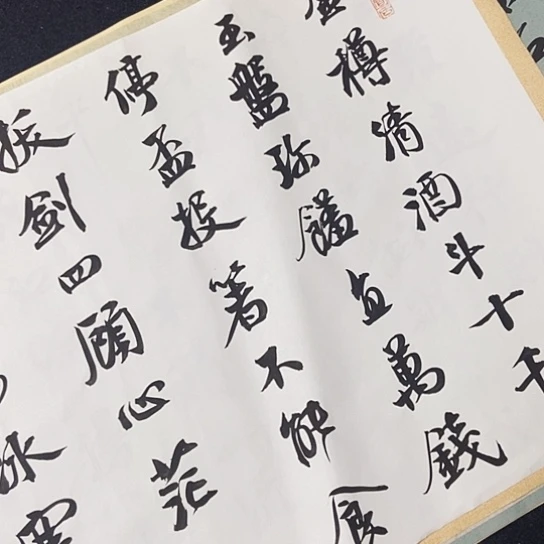 金樽清酒斗十千
玉盤珍饈直萬錢
停盃投箸不能食
拔劍四顧心茫
冰